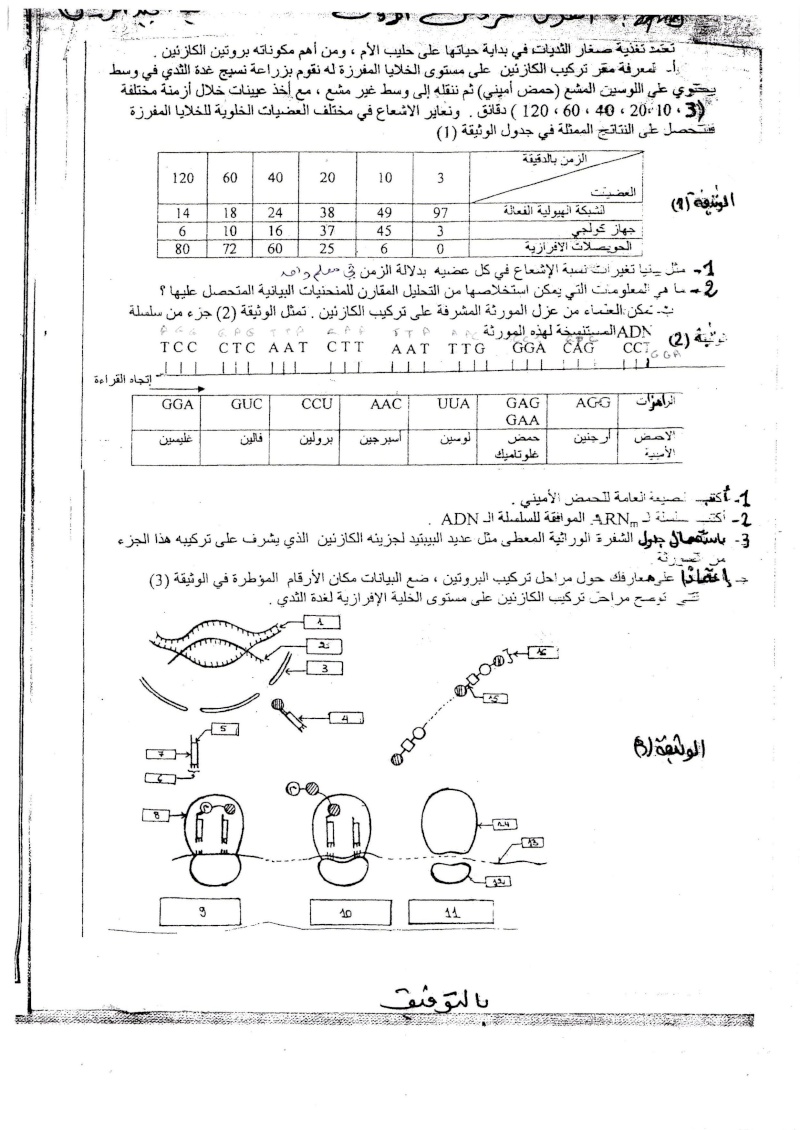 تعتمد تغذية صغار الثديات في بداية حياتها على حليب الأم ، ومن أهم مكوناته بروتين الكازئين .
أ- لمعرفة مقر تركيب الكازئين على مستوى الخلايا المفرزة له نقوم بزراعة نسيج غدة الثدي في وسط
يحتوي على اللوسين المشع (حمض أميني) ثم ننقله إلى وسط غير مشع ، مع أخذ عينات خلال أزمنة مختلفة
(3 ، 10 ، 20 ، 40 ، 60 ، 120 ) دقائق . ونعاير الاشعاع في مختلف العضيات الخلوية للخلايا المفرزة
فنتحصل على النتائج الممثلة في جدول الوثيقة (1)
الوثيقة (1)
الزمن بالدقيقة
العضيات 3 10 20 40 60 120
الشبكة الهيولية الفعالة 97 49 38 24 18 14
جهاز كولجي 3 45 37 16 10 6
الحويصلات الافرازية 0 6 25 60 72 80
1- مثل بيانيا تغيرات نسبة الإشعاع في كل عضيه بدلالة الزمن في معلم واحد
2- ما هي المعلومات التي يمكن استخلاصها من التحليل المقارن للمنحنيات البيانية المتحصل عليها ؟
ب- تمكن العلماء من عزل المورثة المشرفة على تركيب الكازئين . تمثل الوثيقة (2) جزء من سلسلة
ADN المستنسخة لهذه المورثة
وثيقة (2)
TCC CTC AAT CTT AAT TTG GGA CAG CCT
GGA
إتجاه القراءة
الرامزات AGG GAG GAA UUA AAC CCU GUC GGA
الاحماض الأمينية أرجنين حمض غلوتاميك لوسين أسبرجين برولين فالين غليسين
1- أكتب الصيغة العامة للحمض الأميني .
2- أكتب سلسلة الـ ARNm الموافقة للسلسلة الـ ADN .
3- باستعمال جدول الشفرة الوراثية المعطى مثل عديد الببتيد لجزيئه الكازئين الذي يشرف على تركيبه هذا الجزء
من المورثة
جـ- إعتمادا على معارفك حول مراحل تركيب البروتين ، ضع البيانات مكان الأرقام المؤطرة في الوثيقة (3)
التي توضح مراحل تركيب الكازئين على مستوى الخلية الإفرازية لغدة الثدي .
1
2
3
4
5
7
6
16
15
الوثيقة (3)
8
14
13
12
9
10
11
بالتوفيق